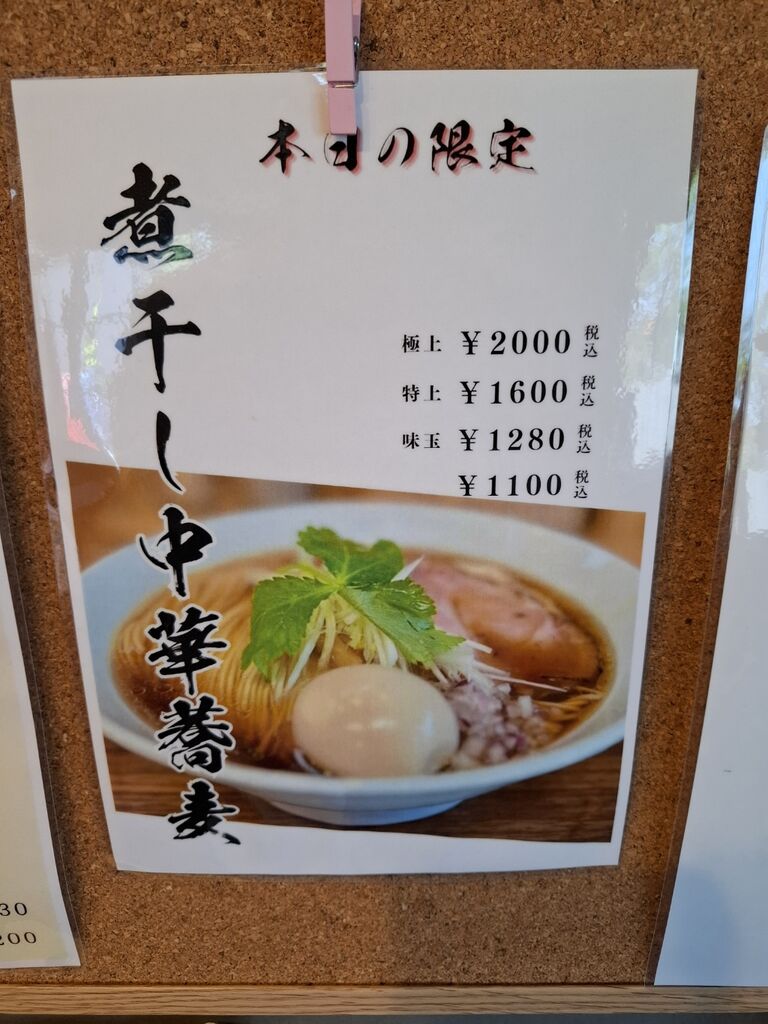 本日の限定
煮干し中華蕎麦
極上 ¥2000 税込
特上 ¥1600 税込
味玉 ¥1280 税込
¥1100 税込
30
200